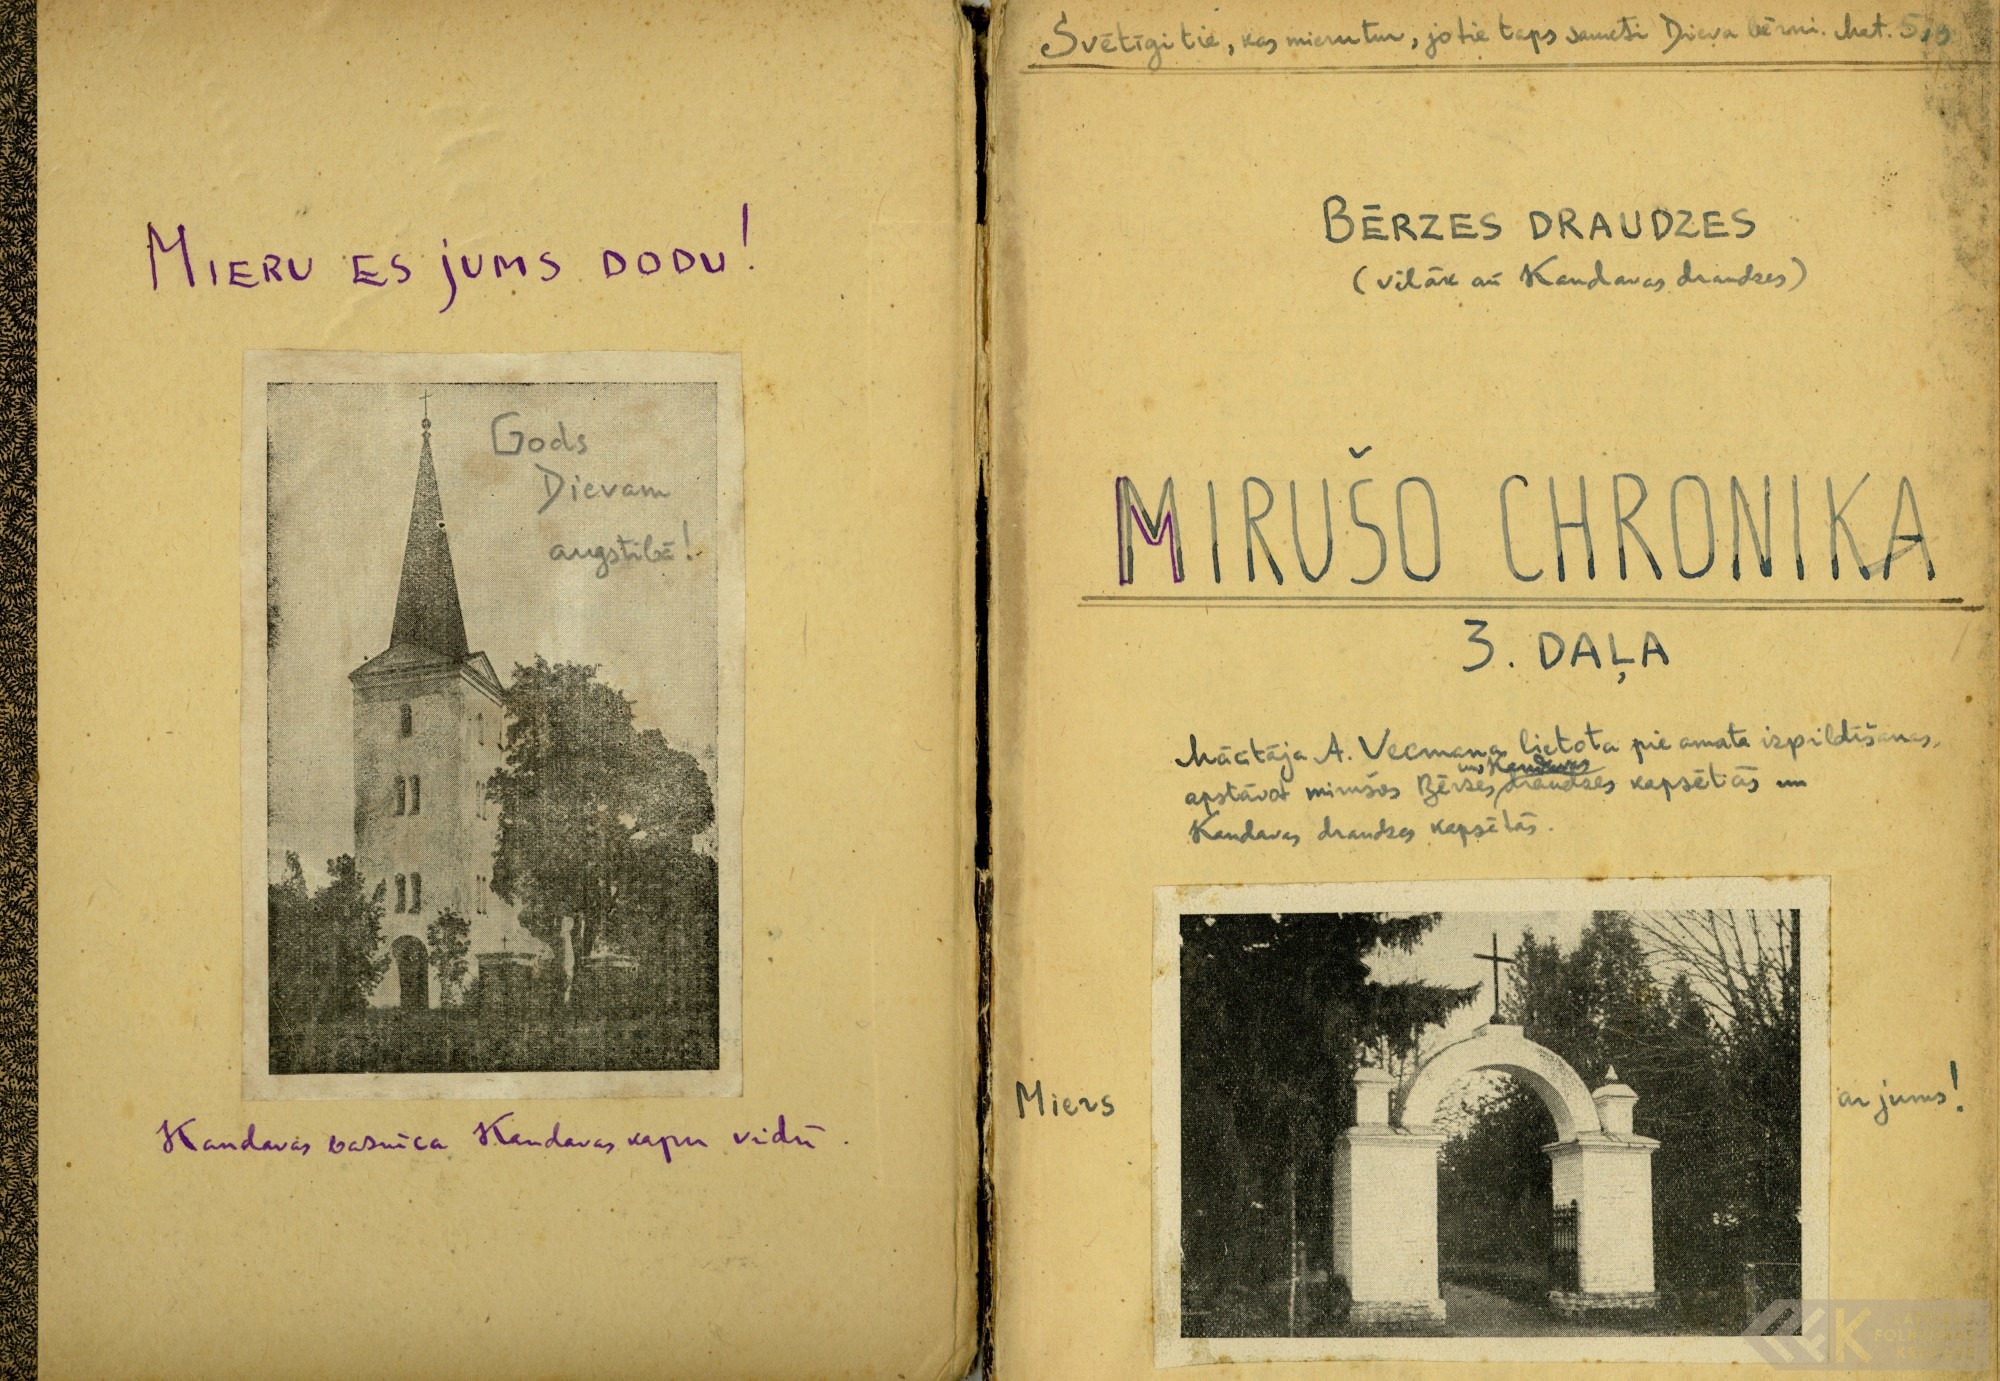 MIERU ES JUMS DODU!
Gods
Dievam
augstībā!
Kandavas baznīca Kandavas kapu vidū.
Svētīgi tie, kas mieru tur, jo tie taps saukti Dieva bērni. Mat. 5,9
BĒRZES DRAUDZES
(vēlāk arī Kandavas draudzes)
MIRUŠO CHRONIKA
3. DAĻA
Mācītāja A. Vecmaņa lietota pie amata izpildīšanas,
apstāvot mirušos Bērzes draudzes kapsētās un
Kandavas draudzes kapsētās.
Miers
ar jums!
LATVIEŠU
FOLKLORAS
KRĀTUVE